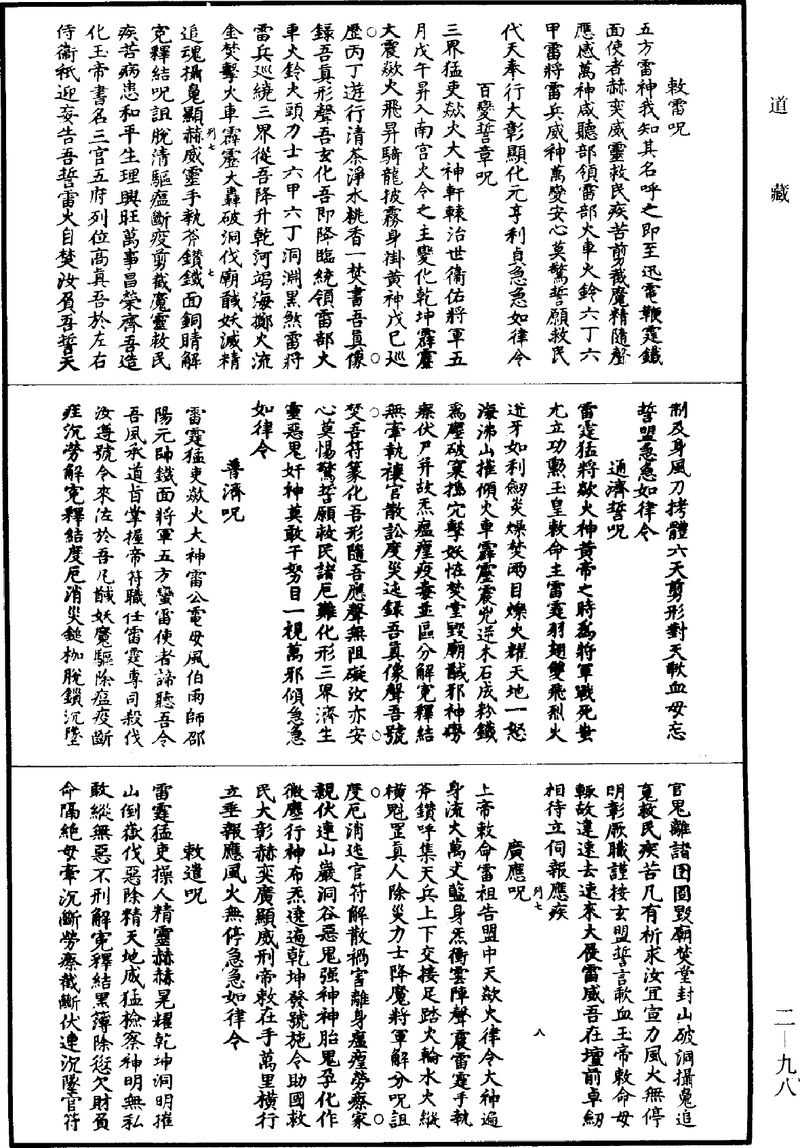 道藏
敕雷呪
五方雷神我知其名呼之即至迅電鞭霆鐵
面使者赫奕威靈救民疾苦剪截魔精隨聲
應感萬神咸聽部領雷部火車火鈴六丁六
甲雷將雷兵威神萬變安心莫驚誓願救民
代天奉行大彰顯化元亨利貞急急如律令
百變誓章呪
三界猛吏欻火大神軒轅治世衛佑將軍五
月戊午昇入南宮火令之主變化乾坤霹靂
大震欻火飛昇騎龍披霧身掛黃神戊巳巡
歷丙丁遊行清茶淨水桃香一焚書吾真像
錄吾真形聲吾玄化吾即降臨統領雷部火
車火鈴火頭力士六甲六丁洞淵黑煞雷將
雷兵巡繞三界從吾降升乾河竭海擲火流
金焚擊火車霹靂大轟破洞伐廟馘妖滅精
追魂攝鬼顯赫威靈手執斧鑽鐵面銅睛解
冤釋結呪詛脫清驅瘟斷疫剪截魔靈救民
疾苦病患和平生理興旺萬事昌榮齊吾造
化玉帝書名三官五府列位高真吾於左右
侍衛祇迎妄告吾誓雷火自焚汝負吾誓天
制及身風刀拷體六天剪形對天歃血毋忘
誓盟急急如律令
通濟誓呪
雷霆猛將欻火神黃帝之時為將軍戰死蚩
尤立功勳玉皇敕命主雷霆羽翅雙飛烈火
迸牙如利劒炎燥焚兩目爍火耀天地一怒
海沸山摧傾火車霹靂震兇逆木石成粉鐵
為塵破窠搗穴擊妖怪焚堂毀廟馘邪神癆
瘵伏尸并故炁瘟瘽疫毒並區分解冤釋結
無牽執禳官散訟度災迍錄吾真像聲吾號
焚吾符篆化吾形隨吾應聲無阻礙汝亦安
心莫惕驚誓願救民諸厄難化形三界濟生
靈惡鬼奸神莫敢干努目一視萬邪傾急急
如律令
普濟呪
雷霆猛吏欻火大神雷公電母風伯雨師邵
陽元帥鐵面將軍五方蠻雷使者諦聽吾令
吾風承道旨掌握帝符職任雷霆專司殺伐
汝遵號令來佐於吾凡馘妖魔驅除瘟疫斷
疰沉勞解冤釋結度厄消災鎚枷脫鎖沉墜
官鬼離諸囹圄毀廟焚堂封山破洞攝鬼追
䰟救民疾苦凡有祈求汝宜宣力風火無停
明彰厥職謹按玄盟誓言歃血玉帝敕命毋
輒故違速去速來大展雷威吾在壇前卓劒
相待立伺報應疾
廣應呪
上帝敕命雷祖告盟中天欻火律令大神遍
身流火萬丈藍身炁衝雲陣聲震雷霆手執
斧鑽呼集天兵上下交接足踏火輪水火縱
橫魁罡真人除災力士降魔將軍解分呪詛
度厄消迍官符解散禍害離身瘟瘽勞瘵家
親伏連山巖洞谷惡鬼強神神胎鬼孕化作
微塵行神布炁遶遍乾坤發號施令助國救
民大彰赫奕廣顯威刑帝敕在手萬里橫行
立垂報應風火無停急急如律令
敕遣呪
雷霆猛吏操人精靈赫赫晃耀乾坤洞明摧
山倒嶽伐惡除精天地威猛檢察神明無私
敢縱無惡不刑解冤釋結黑簿除愆欠財負
命隔絕毋牽沉斷勞瘵截斷伏連沉墜官符
列七
七
列七
八
二—九八